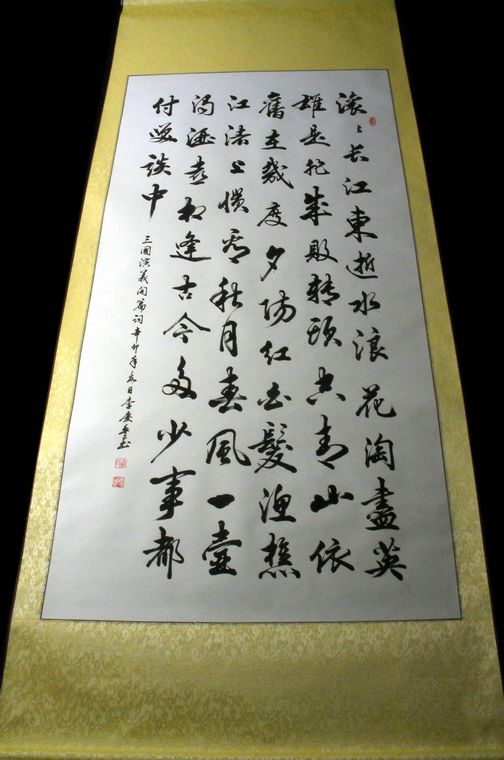 滚〻长江東逝水浪花淘盡英
雄是非成敗轉頭空青山依
舊在幾度夕陽紅白髮漁樵
江渚上慣看秋月春風一壺
濁酒喜相逢古今多少事都
付笑談中
三國演義開篇詞辛卯年夏日李